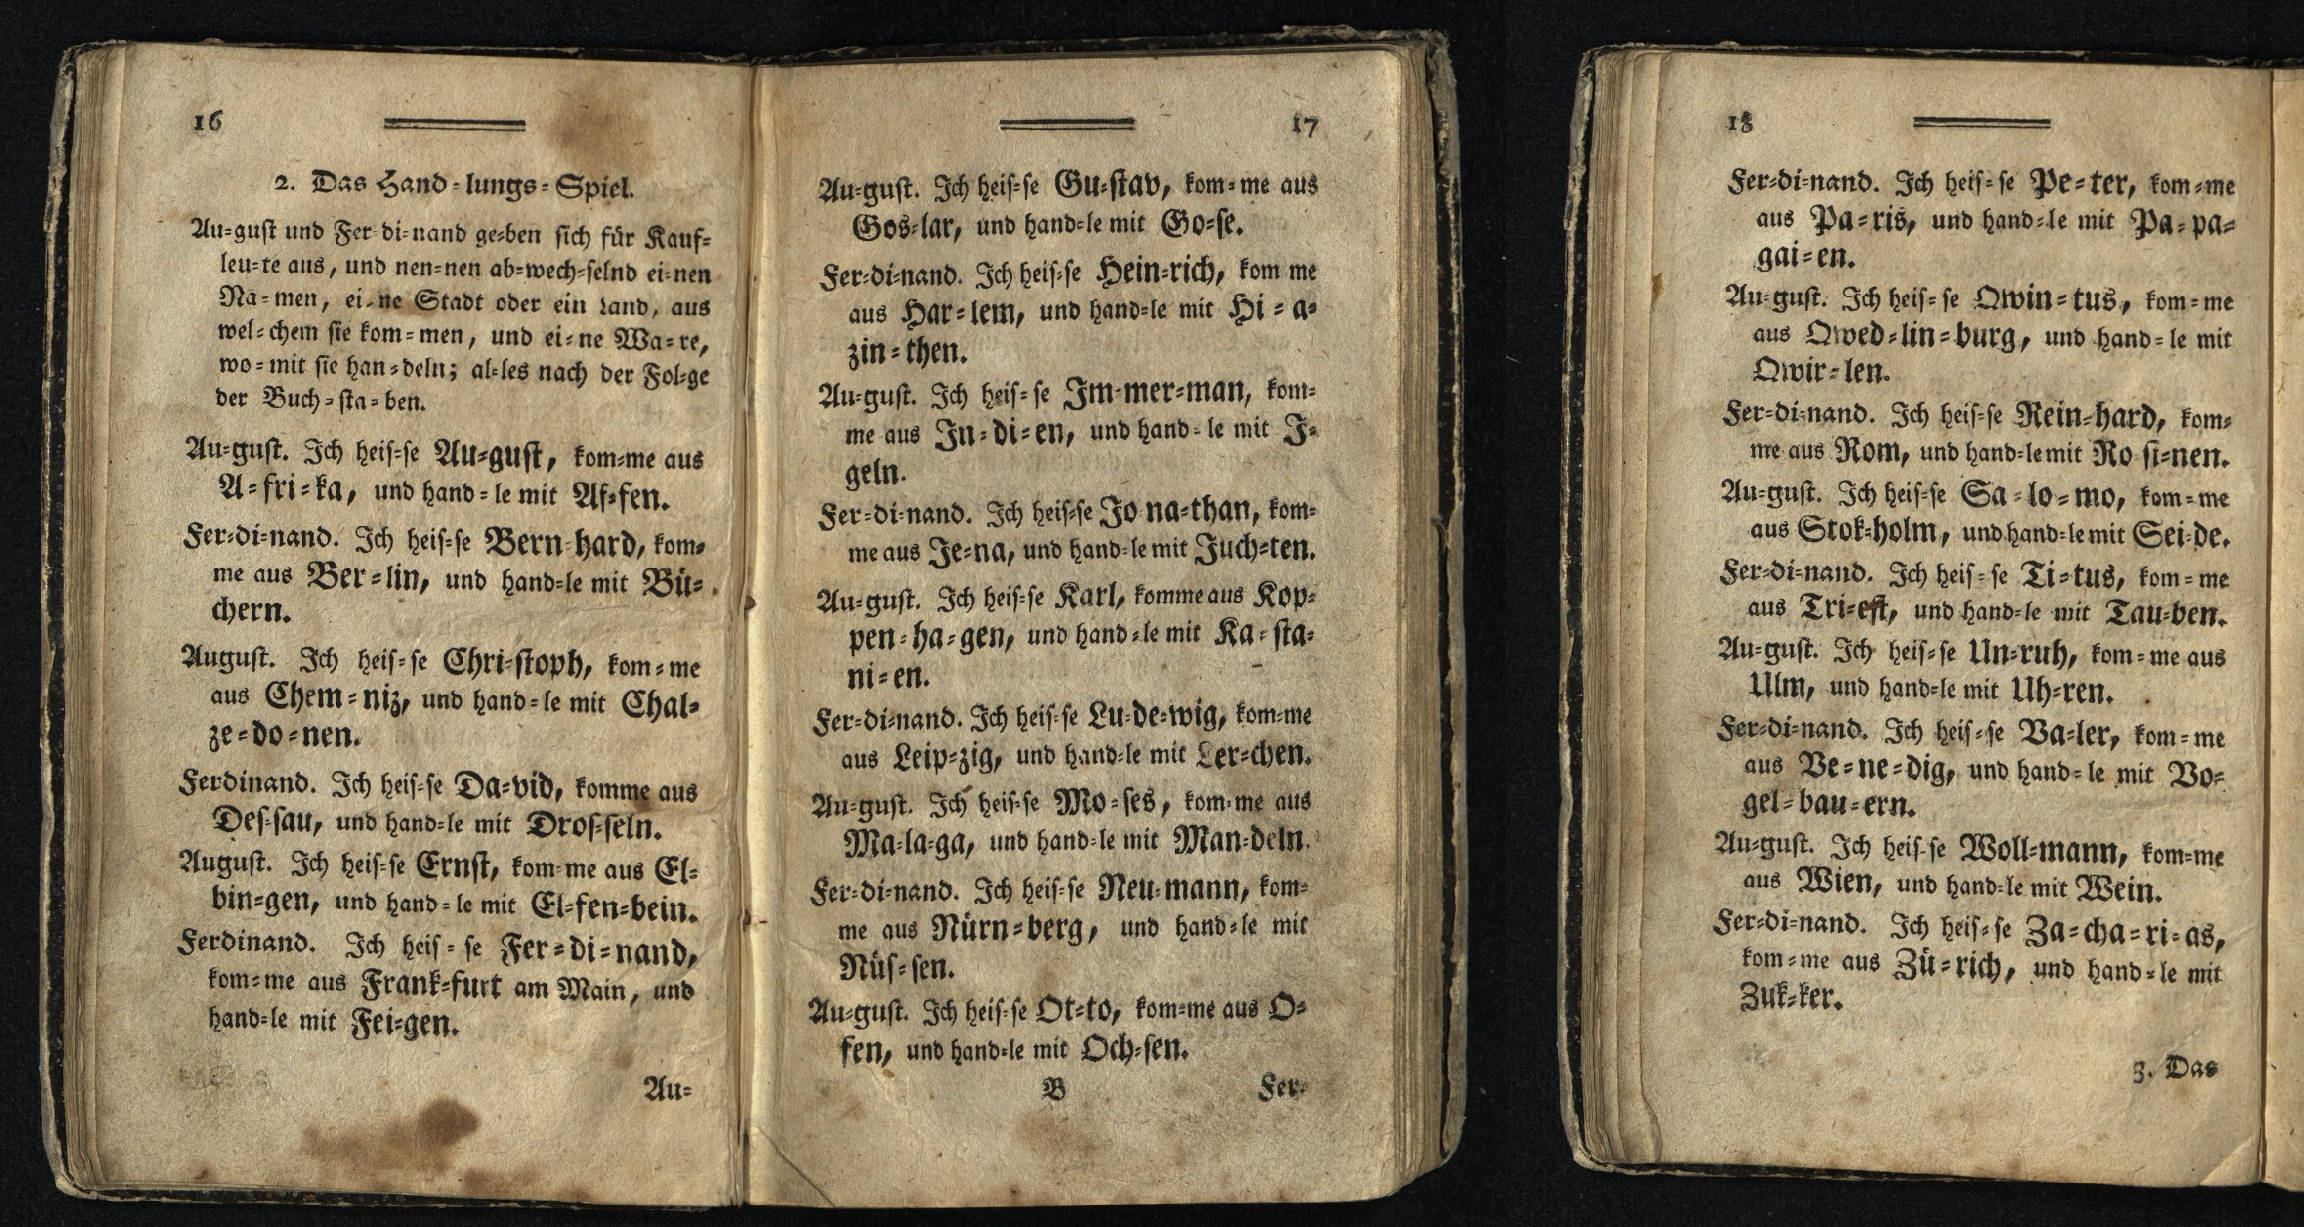 16
2. Das Hand=lungs=Spiel.
Au=gust und Fer=di=nand ge=ben sich für Kauf=
leu=te aus, und nen=nen ab=wech=selnd ei=nen
Na=men, ei=ne Stadt oder ein Land, aus
wel=chem sie kom=men, und ei=ne Wa=re,
wo=mit sie han=deln; al=les nach der Fol=ge
der Buch=sta=ben.
Au=gust. Ich heis=se Au=gust, kom=me aus
A=fri=ka, und hand=le mit Af=fen.
Fer=di=nand. Ich heis=se Bern=hard, kom=
me aus Ber=lin, und hand=le mit Bü=
chern.
August. Ich heis=se Chri=stoph, kom=me
aus Chem=niz, und hand=le mit Chal=
ze=do=nen.
Ferdinand. Ich heis=se Da=vid, komme aus
Des=sau, und hand=le mit Dros=seln.
August. Ich heis=se Ernst, kom=me aus El=
bin=gen, und hand=le mit El=fen=bein.
Ferdinand. Ich heis=se Fer=di=nand,
kom=me aus Frank=furt am Main, und
hand=le mit Fei=gen.
Au=
17
Au=gust. Ich heis=se Gu=stav, kom=me aus
Gos=lar, und hand=le mit Go=se.
Fer=di=nand. Ich heis=se Hein=rich, kom me
aus Har=lem, und hand=le mit Hi=a=
zin=then.
Au=gust. Ich heis=se Im=mer=man, kom=
me aus In=di=en, und hand=le mit I=
geln.
Fer=di=nand. Ich heis=se Jo na=than, kom=
me aus Je=na, und hand=le mit Juch=ten.
Au=gust. Ich heis=se Karl, komme aus Kop=
pen=ha=gen, und hand=le mit Ka=sta=
ni=en.
Fer=di=nand. Ich heis=se Lu=de=wig, kom=me
aus Leip=zig, und hand=le mit Ler=chen.
Au=gust. Ich heis=se Mo=ses, kom=me aus
Ma=la=ga, und hand=le mit Man=deln.
Fer=di=nand. Ich heis=se Neu=mann, kom=
me aus Nürn=berg, und hand=le mit
Nüs=sen.
Au=gust. Ich heis=se Ot=to, kom=me aus O=
fen, und hand=le mit Och=sen.
B Fer=
18
Fer=di=nand. Ich heis=se Pe=ter, kom=me
aus Pa=ris, und hand=le mit Pa=pa=
gai=en.
Au=gust. Ich heis=se Qwin=tus, kom=me
aus Qwed=lin=burg, und hand=le mit
Qwir=len.
Fer=di=nand. Ich heis=se Rein=hard, kom=
me aus Rom, und hand=le mit Ro si=nen.
Au=gust. Ich heis=se Sa=lo=mo, kom=me
aus Stok=holm, und hand=le mit Sei=de.
Fer=di=nand. Ich heis=se Ti=tus, kom=me
aus Tri=est, und hand=le mit Tau=ben.
Au=gust. Ich heis=se Un=ruh, kom=me aus
Ulm, und hand=le mit Uh=ren.
Fer=di=nand. Ich heis=se Va=ler, kom=me
aus Ve=ne=dig, und hand=le mit Vo=
gel=bau=ern.
Au=gust. Ich heis=se Woll=mann, kom=me
aus Wien, und hand=le mit Wein.
Fer=di=nand. Ich heis=se Za=cha=ri=as,
kom=me aus Zü=rich, und hand=le mit
Zuk=ker.
3. Das